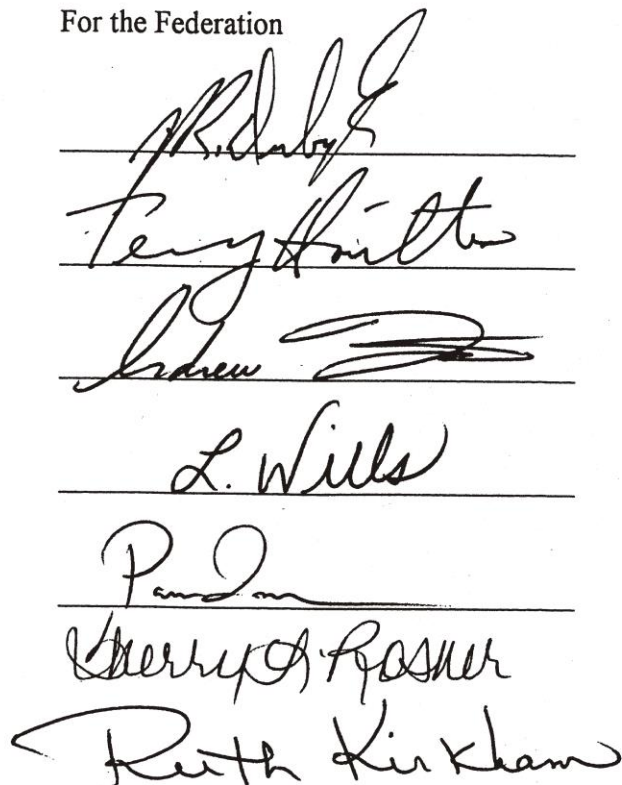 For the Federation
Terry Hamilton
Andrew
L. Wills
Pam
Sherry A. Rosner
Ruth Kirkham